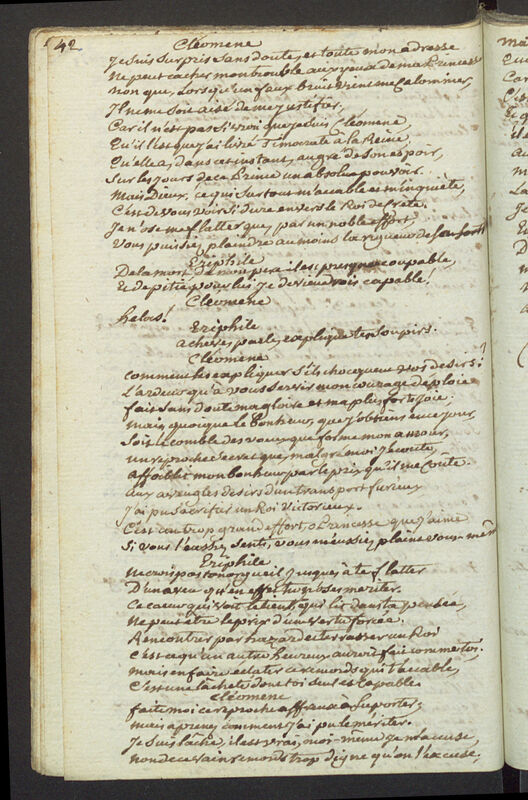 42
Cléomene
Je suis surpris sans doute, et toute mon adresse
Ne peut cacher mon trouble aux yeux de ma Princesse
non que, Lorsqu'un faux bruit vient me Calomnier,
Il ne me soit aisé de me justifier,
Car il n'est pas si vrai que je suis Cléomene,
Qu'il l'est que j'ai livré Timocrate à la Reine
Qu'elle a, dans cet instant, au gré de son espoir,
Sur les jours de ce Prince un absolu pouvoir.
Mais Dieux! ce qui sur tout m'accable et m'inquiéte,
C'est de vous voir si dure envers le Roi de Crete.
Je n'ose me flatter que, par un noble effort,
Vous puissiez plaindre au moins la rigueur de son sort
Eriphile
De la mort de mon pere il est presque coupable,
Et de pitié pour lui je deviendrois capable!
Cléomene
helas!
Eriphile
acheve, parle, explique tes soupirs.
Cléomene
comment les expliquer s'ils choquent vos desirs?
L'ardeur qu'à vous servir mon courage deploie
fait sans doute ma gloire et ma plus forte joie.
mais quoique le Bonheur que j'obtiens en ce jour,
Soit le comble des voeux que forme mon amour,
un reproche secret que, malgré moi j'ecoute,
affoiblit mon bonheur par le prix qu'il me Coute.
aux aveugles desirs d'un transport furieux
J'ai pu sacrifier un Roi Victorieux.
C'est un trop grand effort, o Princesse que j'aime
Si vous l'aussiez senti, vous m'eussiez plaint vous-même
Eriphile
Ne crois pas ton orgueil jusques à te flatter
D'un aveu qu'en effet tu n'oses meriter.
Ce coeur qui voit le tien, qui lit dans ta pensée,
Ne peut être le prix d'une vertu forcée.
Rencontrer par hazard et terrasser un Roi
C'est ce qu'un autre heureux auroit fait comme toi.
mais en faire eclater ce remords qui t'accable,
C'est une lacheté dont toi seul es Capable
Cléomene
faite moi ce reproche affreux à suporter;
mais aprenez comment j'ai pu le meriter.
Je suis lâche, il est vrai, moi-même je m'accuse,
non de ce vain remords trop digne qu'on l'excuse,